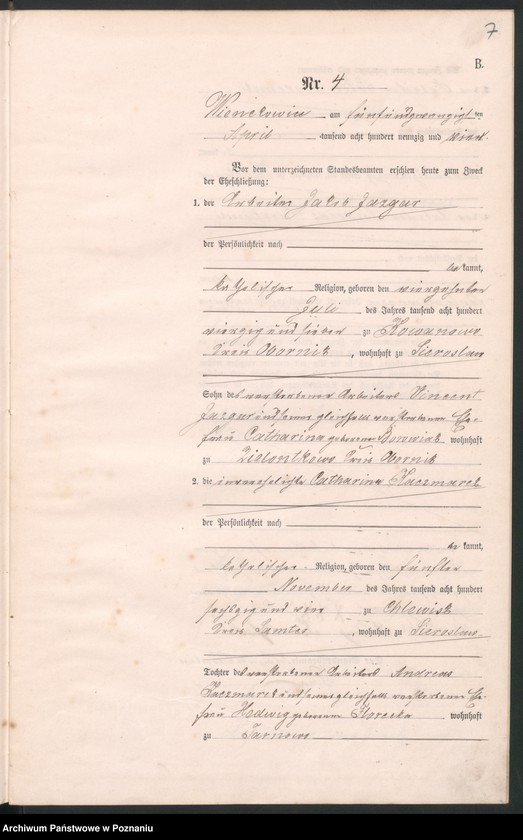 7
B.
Nr. 4
am fünfundzwanzigsten
April tausend acht hundert neunzig und vier.
Vor dem unterzeichneten Standesbeamten erschien heute zum Zweck
der Eheschließung:
1. der Arbeiter Jakob Jazgur
der Persönlichkeit nach
be kannt,
katholischer Religion, geboren den vierzehnten
Juli des Jahres tausend acht hundert
vierzig und sieben zu
Kreis Obornik, wohnhaft zu Sieroslaw
Sohn des verstorbenen Arbeiters Vincent
Jazgur und seiner gleichfalls verstorbenen Ehe-
frau Catharina geborenen Borowiak wohnhaft
zu Zielontkowo Kreis Obornik
2. die unverehelichte Catharina Kaczmarek
der Persönlichkeit nach
be kannt,
katholischer Religion, geboren den fünften
November des Jahres tausend acht hundert
sechzig und vier zu Chlewisk
Kreis Samter, wohnhaft zu Sieroslaw
Tochter des verstorbenen Arbeiters Andreas
Kaczmarek und seiner gleichfalls verstorbenen Ehe-
frau Hedwig geborenen wohnhaft
zu Tarnowo
Archiwum Państwowe w Poznaniu